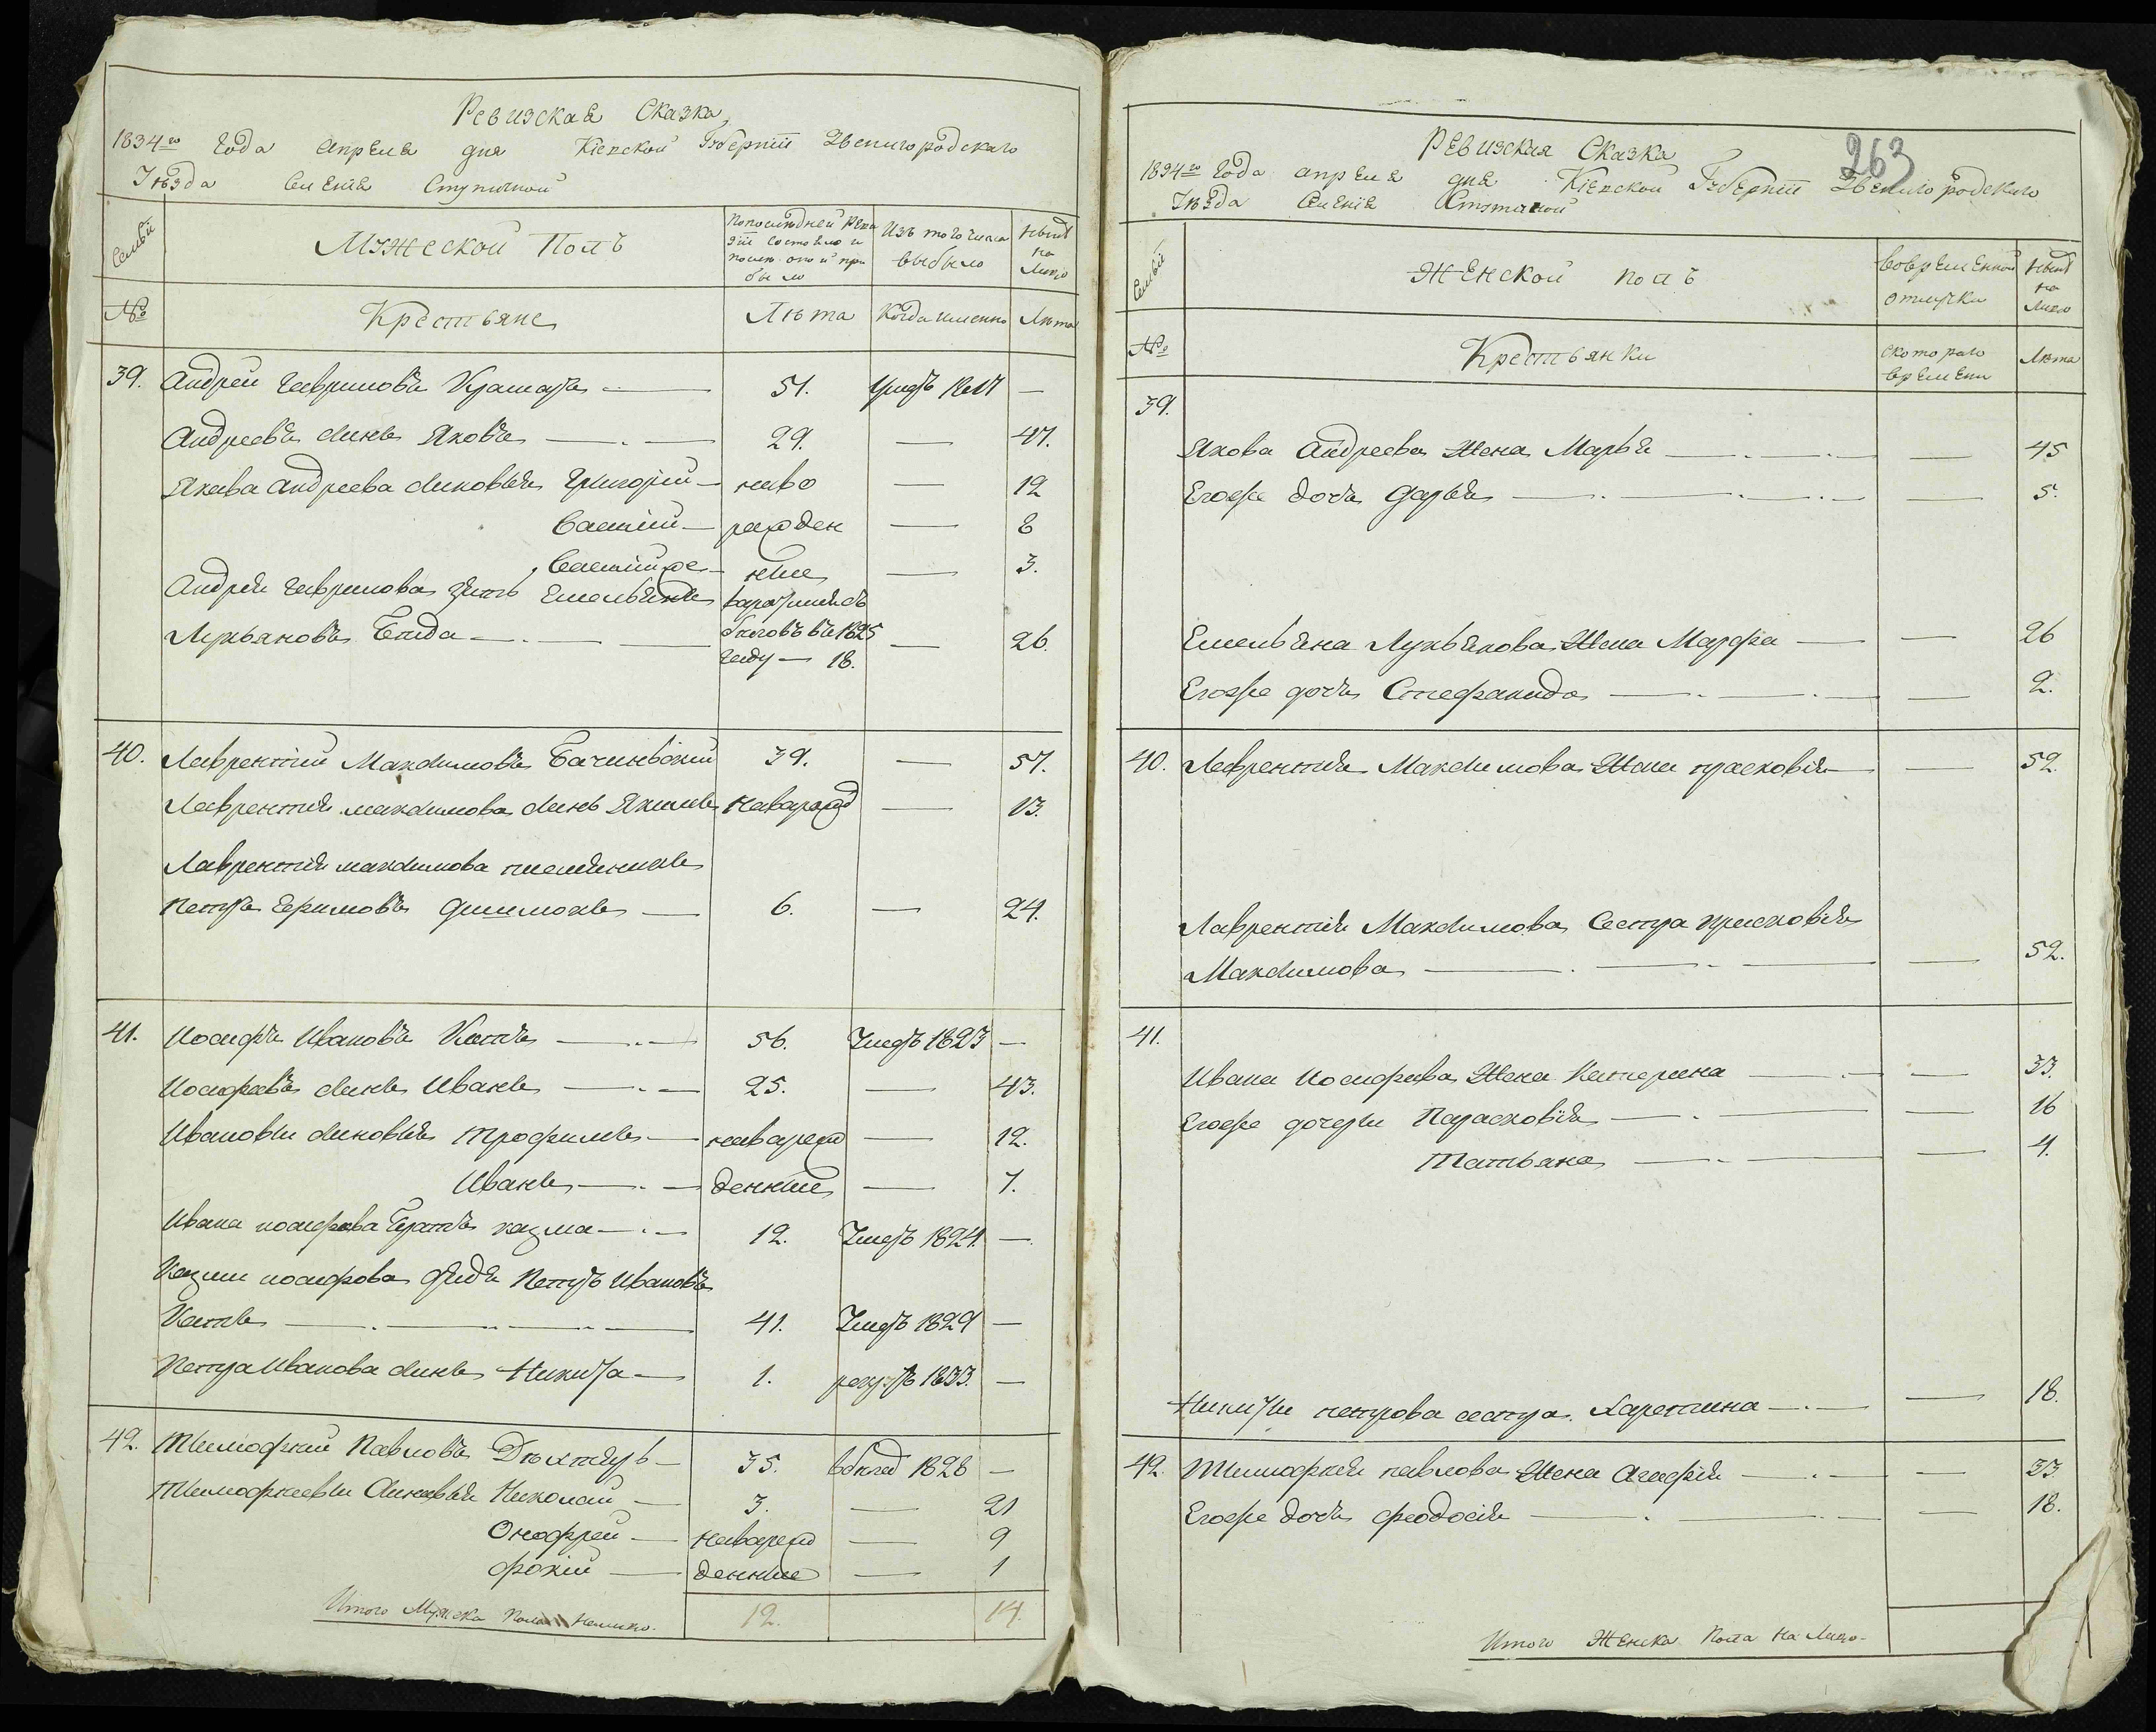 Ревизская Сказка
1834го Года апреля дня Кіевской Губерніи Звенигородскаго
Уѣзда Селенія Ступичной
Семьи
Мужеской Полъ
По последней реви
зіи состояло и
после оной при
было
Изъ того числа
выбыло
Нынѣ
на
Лицо
№
Крестьяне
Лѣта
Когда именно
Лѣта
39. Андрей Гавриловъ 51. умеръ —
Андреевъ сынъ Яковъ — 29. — 47.
Якова Андреева сыновья Григорій — ново — 12
Василій — рожден — 8
Василій же — ные — 3.
Андрея Гаврилова зять Емельянъ
Лукьяновъ Бида — бѣговъ въ 1825 — 26.
году — 18.
40. Лаврентій Максимовъ 39. — 57.
Лаврентія Максимова сынъ Якимъ новорожд — 13.
Лаврентія Максимова племянникъ
Петръ Ефимовъ Филимонъ — 6. — 24.
41. Иосифъ Ивановъ Катъ — 56. Умеръ 1823 —
Иосифовъ сынъ Иванъ — 25. — 43.
Ивановы сыновья Трофимъ — новорож — 12.
Иванъ — денные — 7.
Ивана Иосифова братъ Козма — 12. Умеръ 1824. —
Козмы Иосифова дядя Петръ Ивановъ
Катъ — 41. Умеръ 1829 —
Петра Иванова сынъ Никита — 1. рекрутъ 1833. —
42. Тимофѣй Павловъ Дѣхтяръ — 35. 1828 —
Тимофѣевы сыновья Николай — 3. — 21
Онофрей — новорож — 9
Фокій — денные — 1
Итого Мужска Пола налицо. 12. 14.
263
Ревизская Сказка
1834го Года апреля дня Кіевской Губерніи Звенигородскаго
Уѣзда Селенія Ступичной
Семьи
Женской полъ
Во временной
отлучки
Нынѣ
на
Лицо
№
Крестьянки
с котораго
времени
Лѣта
39.
Якова Андреева Жена Марья — — 45
Егоже дочь Дарья — — 5.
Емельяна Лукьянова Жена Марфа — — 26
Егоже дочь Стефанида — — 2.
40. Лаврентія Максимова Жена Прасковія — — 52.
Лаврентія Максимова Сестра Прасковія
Максимова — — 52.
41.
Ивана Иосифова Жена Катерина — — 33.
Егоже дочери Парасковія — — 16
Татьяна — — 4.
Никиты Петрова сестра Харетина — — 18.
42. Тимофѣя Павлова Жена Агафія — — 33.
Егоже дочь Феодосія — — 18.
Итого Женска Пола на Лицо.